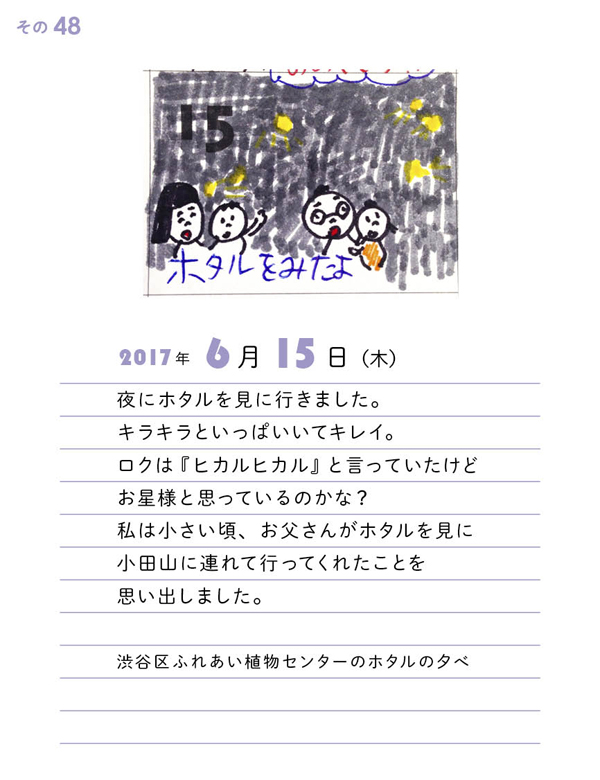 その48
15
ホタルをみたよ
2017年 6月 15日 (木)
夜にホタルを見に行きました。
キラキラといっぱいいてキレイ。
ロクは『ヒカルヒカル』と言っていたけど
お星様と思っているのかな？
私は小さい頃、お父さんがホタルを見に
小田山に連れて行ってくれたことを
思い出しました。
渋谷区ふれあい植物センターのホタルの夕べ